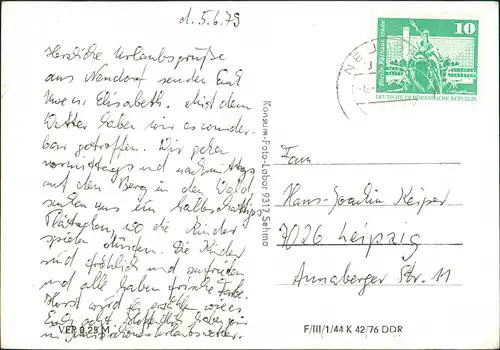 d. 5.6.79
Herzliche Urlaubsgrüße
aus Neudorf senden Euch
Uwe u. Elisabeth. Mit dem
Wetter haben wir es wunder-
bar getroffen. Wir gehen
vormittags und nachmittags
auf den Berg in den Wald
suchen uns ein halbschattiges
Plätzchen, wo die Kinder
spielen können. Die Kinder
sind fröhlich und zufrieden
und alle haben frische Farbe.
Horst wird ja erzählen wie es
Euch geht. Hoffentlich haben wir
Urlaubswetter.
VEP 0,25 M
Konsum-Foto-Labor 9317 Sehma
NEUDORF
10
Berlin, Rathausstraße
DEUTSCHE DEMOKRATISCHE REPUBLIK
Fam.
Hans-Joachim Keiper
7026 Leipzig
Annaberger Str. 11
F/III/1/44 K 42/76 DDR